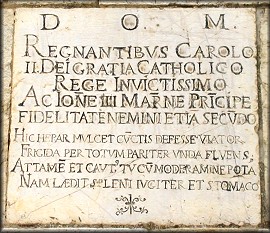 D O M
REGNANTIBVS CAROLO
II DEI GRATIA CATHOLICO
REGE INVICTISSIMO
AC IONE IIII MARNE PRICIPE
FIDELITATE NEMINI ETIA SECVDO
HIC HEPAR MVLCET CVCTIS DEFESSE VIATOR
FRIGIDA PER TOTVM PARITER VNDA FLVENS
ATTAMĒ ET CAVT' TV CVM MODERAMINE POTA
NAM LÆDIT LENI IVGITER ET STOMACO